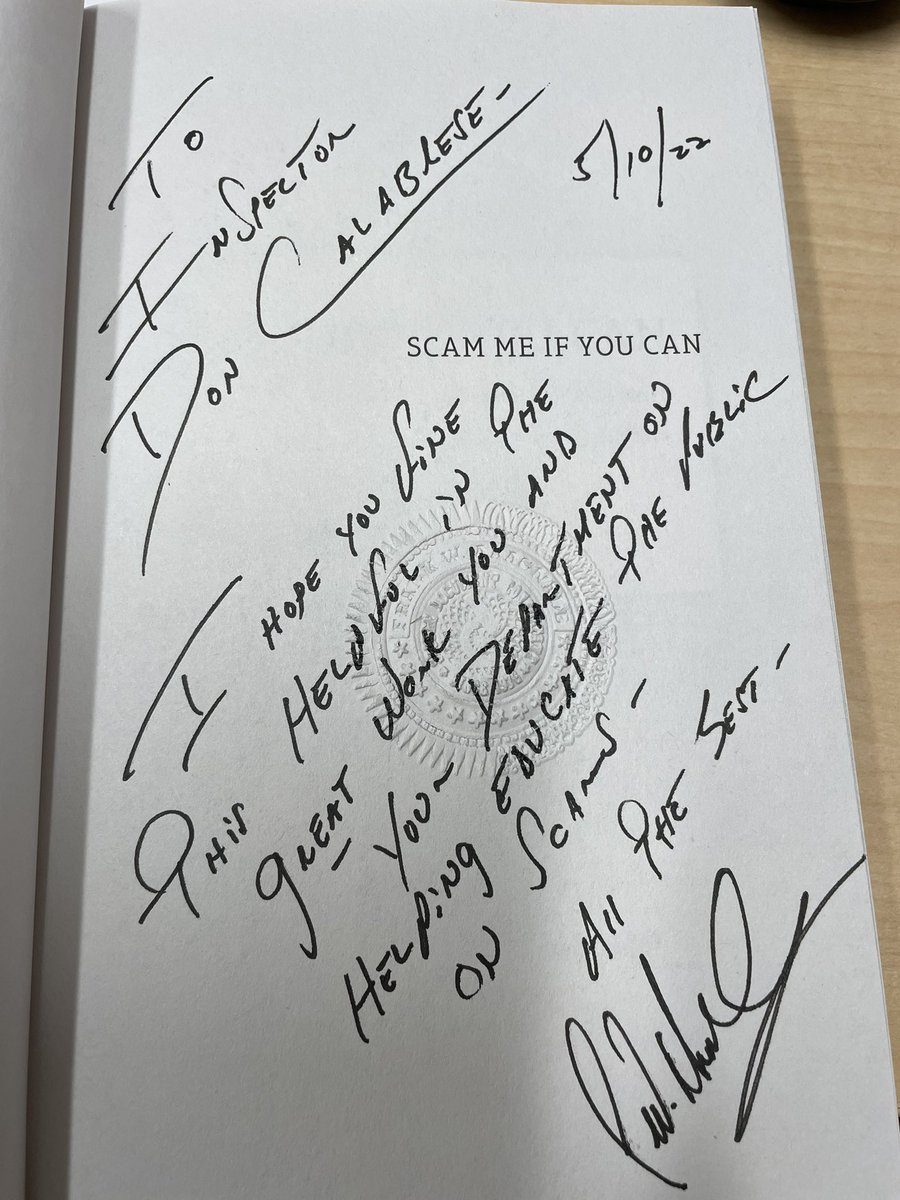 To
INSPECTOR
DON CALABRESE-
5/10/22
SCAM ME IF YOU CAN
I HOPE YOU FINE
THIS HELPFUL IN THE
GREAT WORK YOU AND
YOUR DEPARTMENT ON
HELPING EDUCATE THE PUBLIC
ON SCAMS -
All THE BEST -